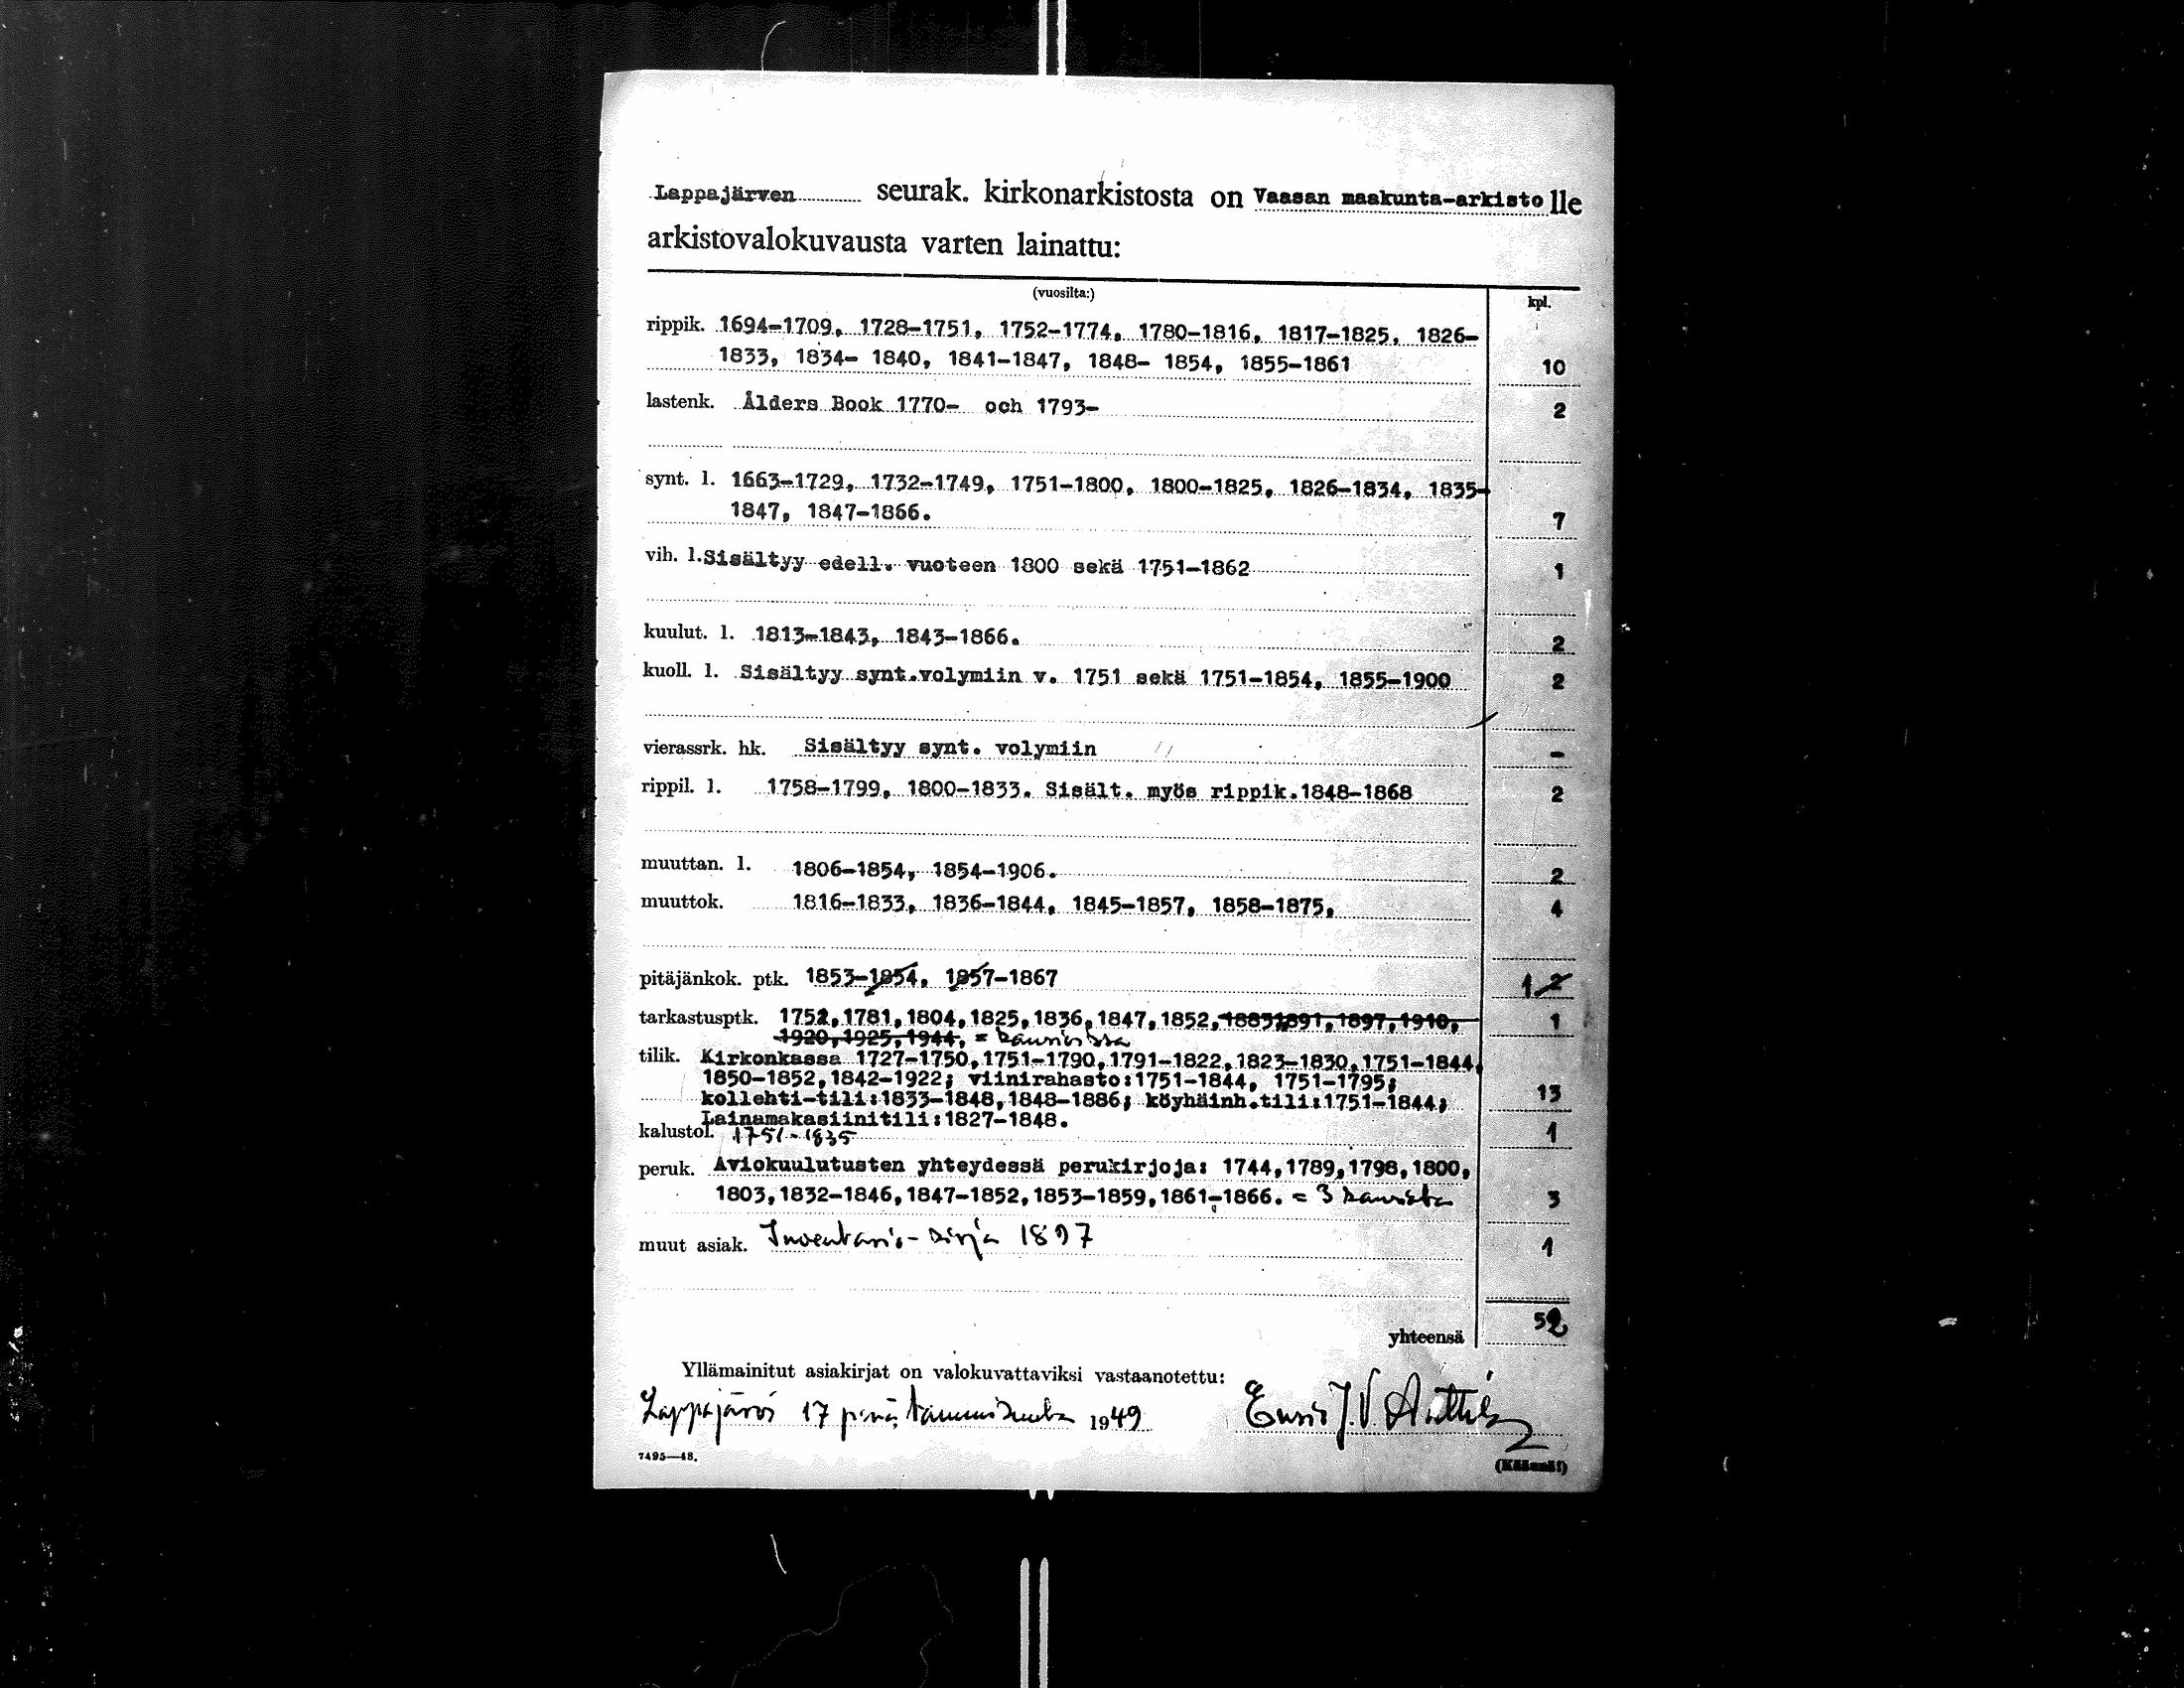 Lappajärven seurak. kirkonarkistosta on Vaasan maakunta-arkisto lle
arkistovalokuvausta varten lainattu:
(vuosilta:) kpl.
rippik. 1694-1709, 1728-1751, 1752-1774, 1780-1816, 1817-1825, 1826-
1833, 1834- 1840, 1841-1847, 1848- 1854, 1855-1861 10
lastenk. Ålders Book 1770- och 1793- 2
synt. l. 1663-1729, 1732-1749, 1751-1800, 1800-1825, 1826-1834, 1835-
1847, 1847-1866. 7
vih. l. Sisältyy edell. vuoteen 1800 sekä 1751-1862 1
kuulut. l. 1813-1843, 1843-1866. 2
kuoll. l. Sisältyy synt.volymiin v. 1751 sekä 1751-1854, 1855-1900 2
vierassrk. hk. Sisältyy synt. volymiin -
rippil. l. 1758-1799, 1800-1833. Sisält. myös rippik.1848-1868 2
muuttan. l. 1806-1854, 1854-1906. 2
muuttok. 1816-1833, 1836-1844, 1845-1857, 1858-1875, 4
pitäjänkok. ptk. 1853-1854, 1857-1867 1 2
tarkastusptk. 1752,1781,1804,1825,1836,1847,1852,1883,1891,1897,1910, 1
1920,1925,1944, =
tilik. Kirkonkassa 1727-1750,1751-1790,1791-1822,1823-1830,1751-1844,
1850-1852,1842-1922; viinirahasto:1751-1844, 1751-1795;
kollehti-tili:1833-1848,1848-1886; köyhäinh.tili:1751-1844; 13
Lainamakasiinitili:1827-1848.
kalustol. 1751-1835 1
peruk. Aviokuulutusten yhteydessä perukirjoja: 1744,1789,1798,1800,
1803,1832-1846,1847-1852,1853-1859,1861-1866. = 3 kansista 3
muut asiak. Inventario-kirja 1897 1
yhteensä 52
Yllämainitut asiakirjat on valokuvattaviksi vastaanotettu:
Lappajärvi 17 p:nä tammikuuta 1949 J.V. Anttila
7495—48. (Käännä!)